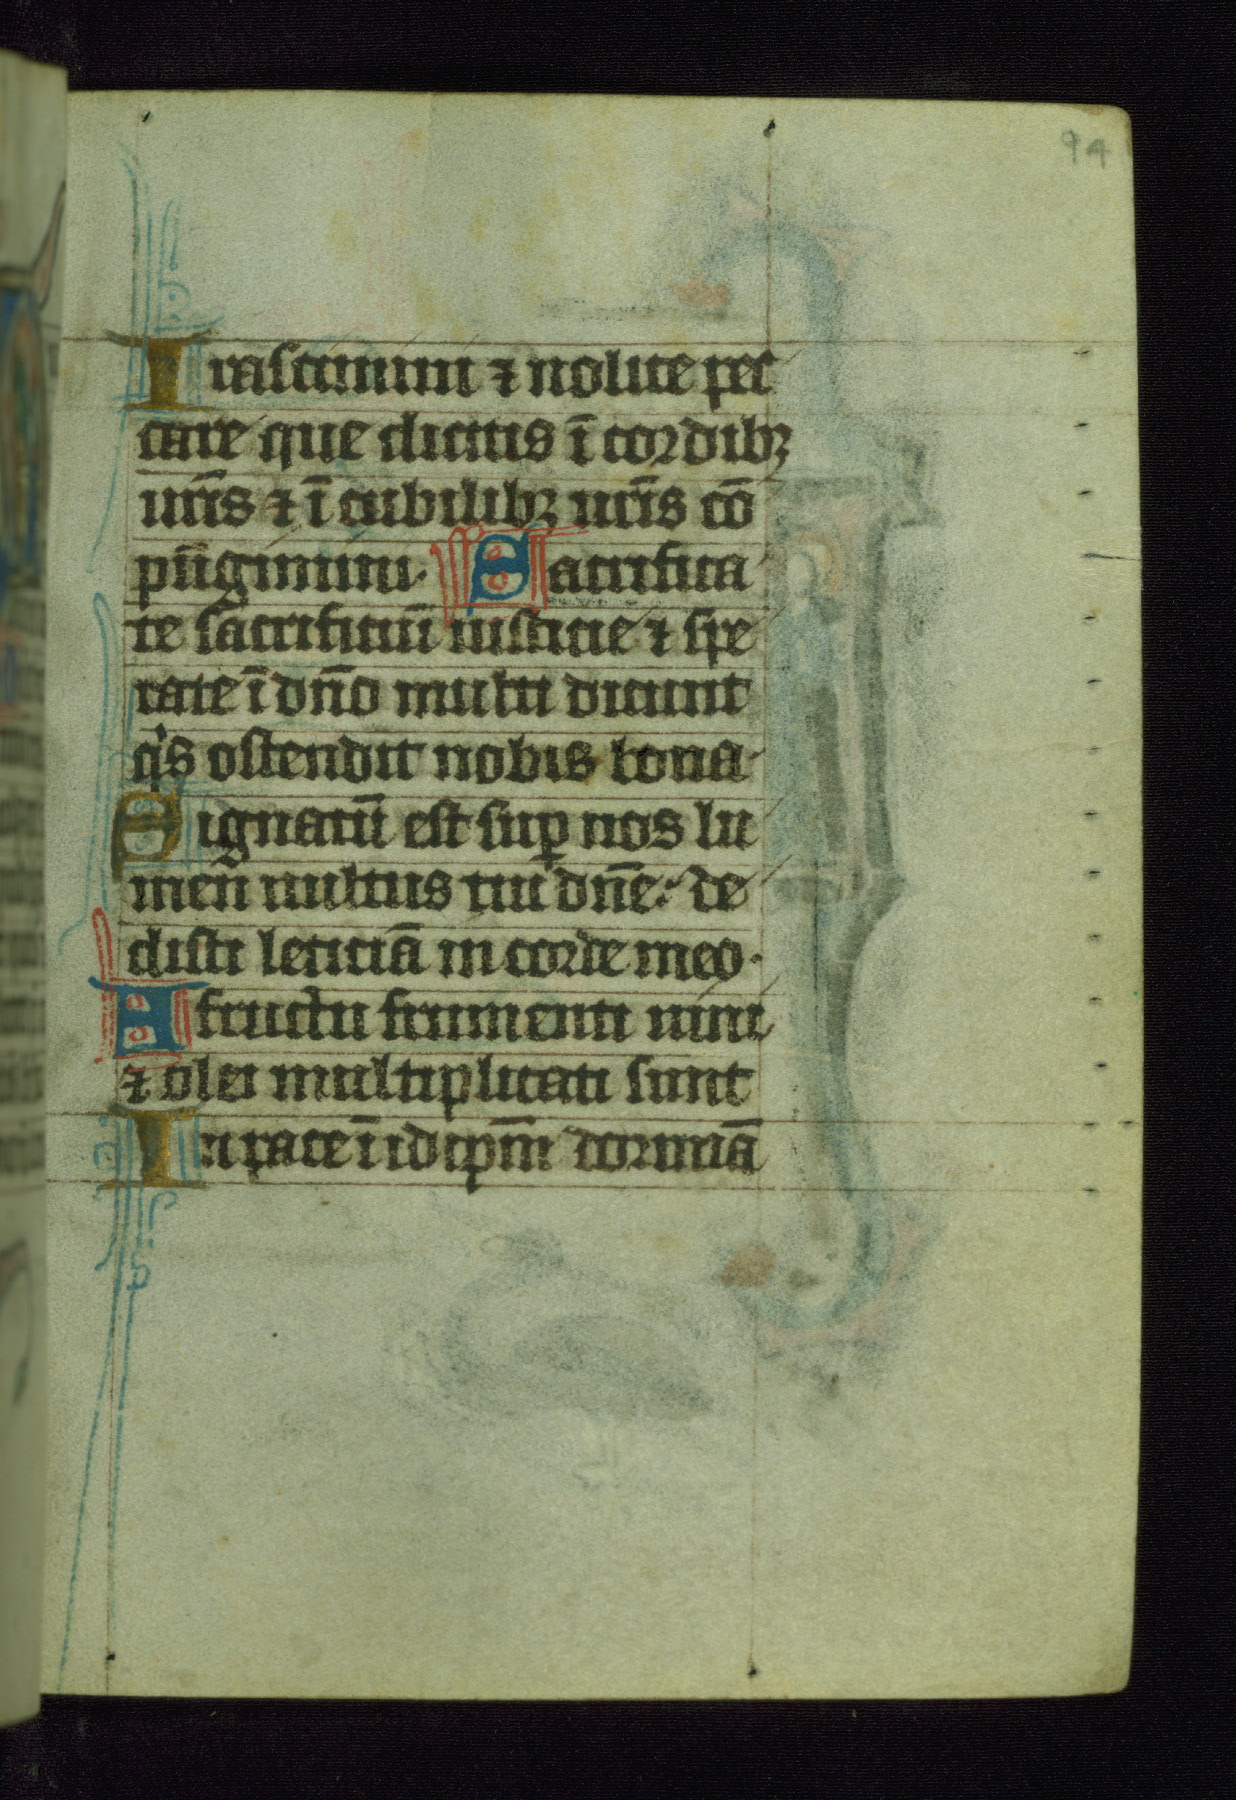 94
Irascimini ⁊ nolite pec
care que dicitis ī cordibꝫ
ur̄is ⁊ ī cubilibꝫ ur̄is cō
pūgimini. Sacrifica
te sacrificiū iusticie ⁊ spe
rate ī dn̄o multi dicunt
qͥs ostendit nobis bona.
Signatū est suꝑ nos lu
men̄ uultus tui dn̄e: de
disti leticiā in corde meo.
A fructu frumenti uini
⁊ olei multiplicati sunt
In pace ī idip̄m dormiā